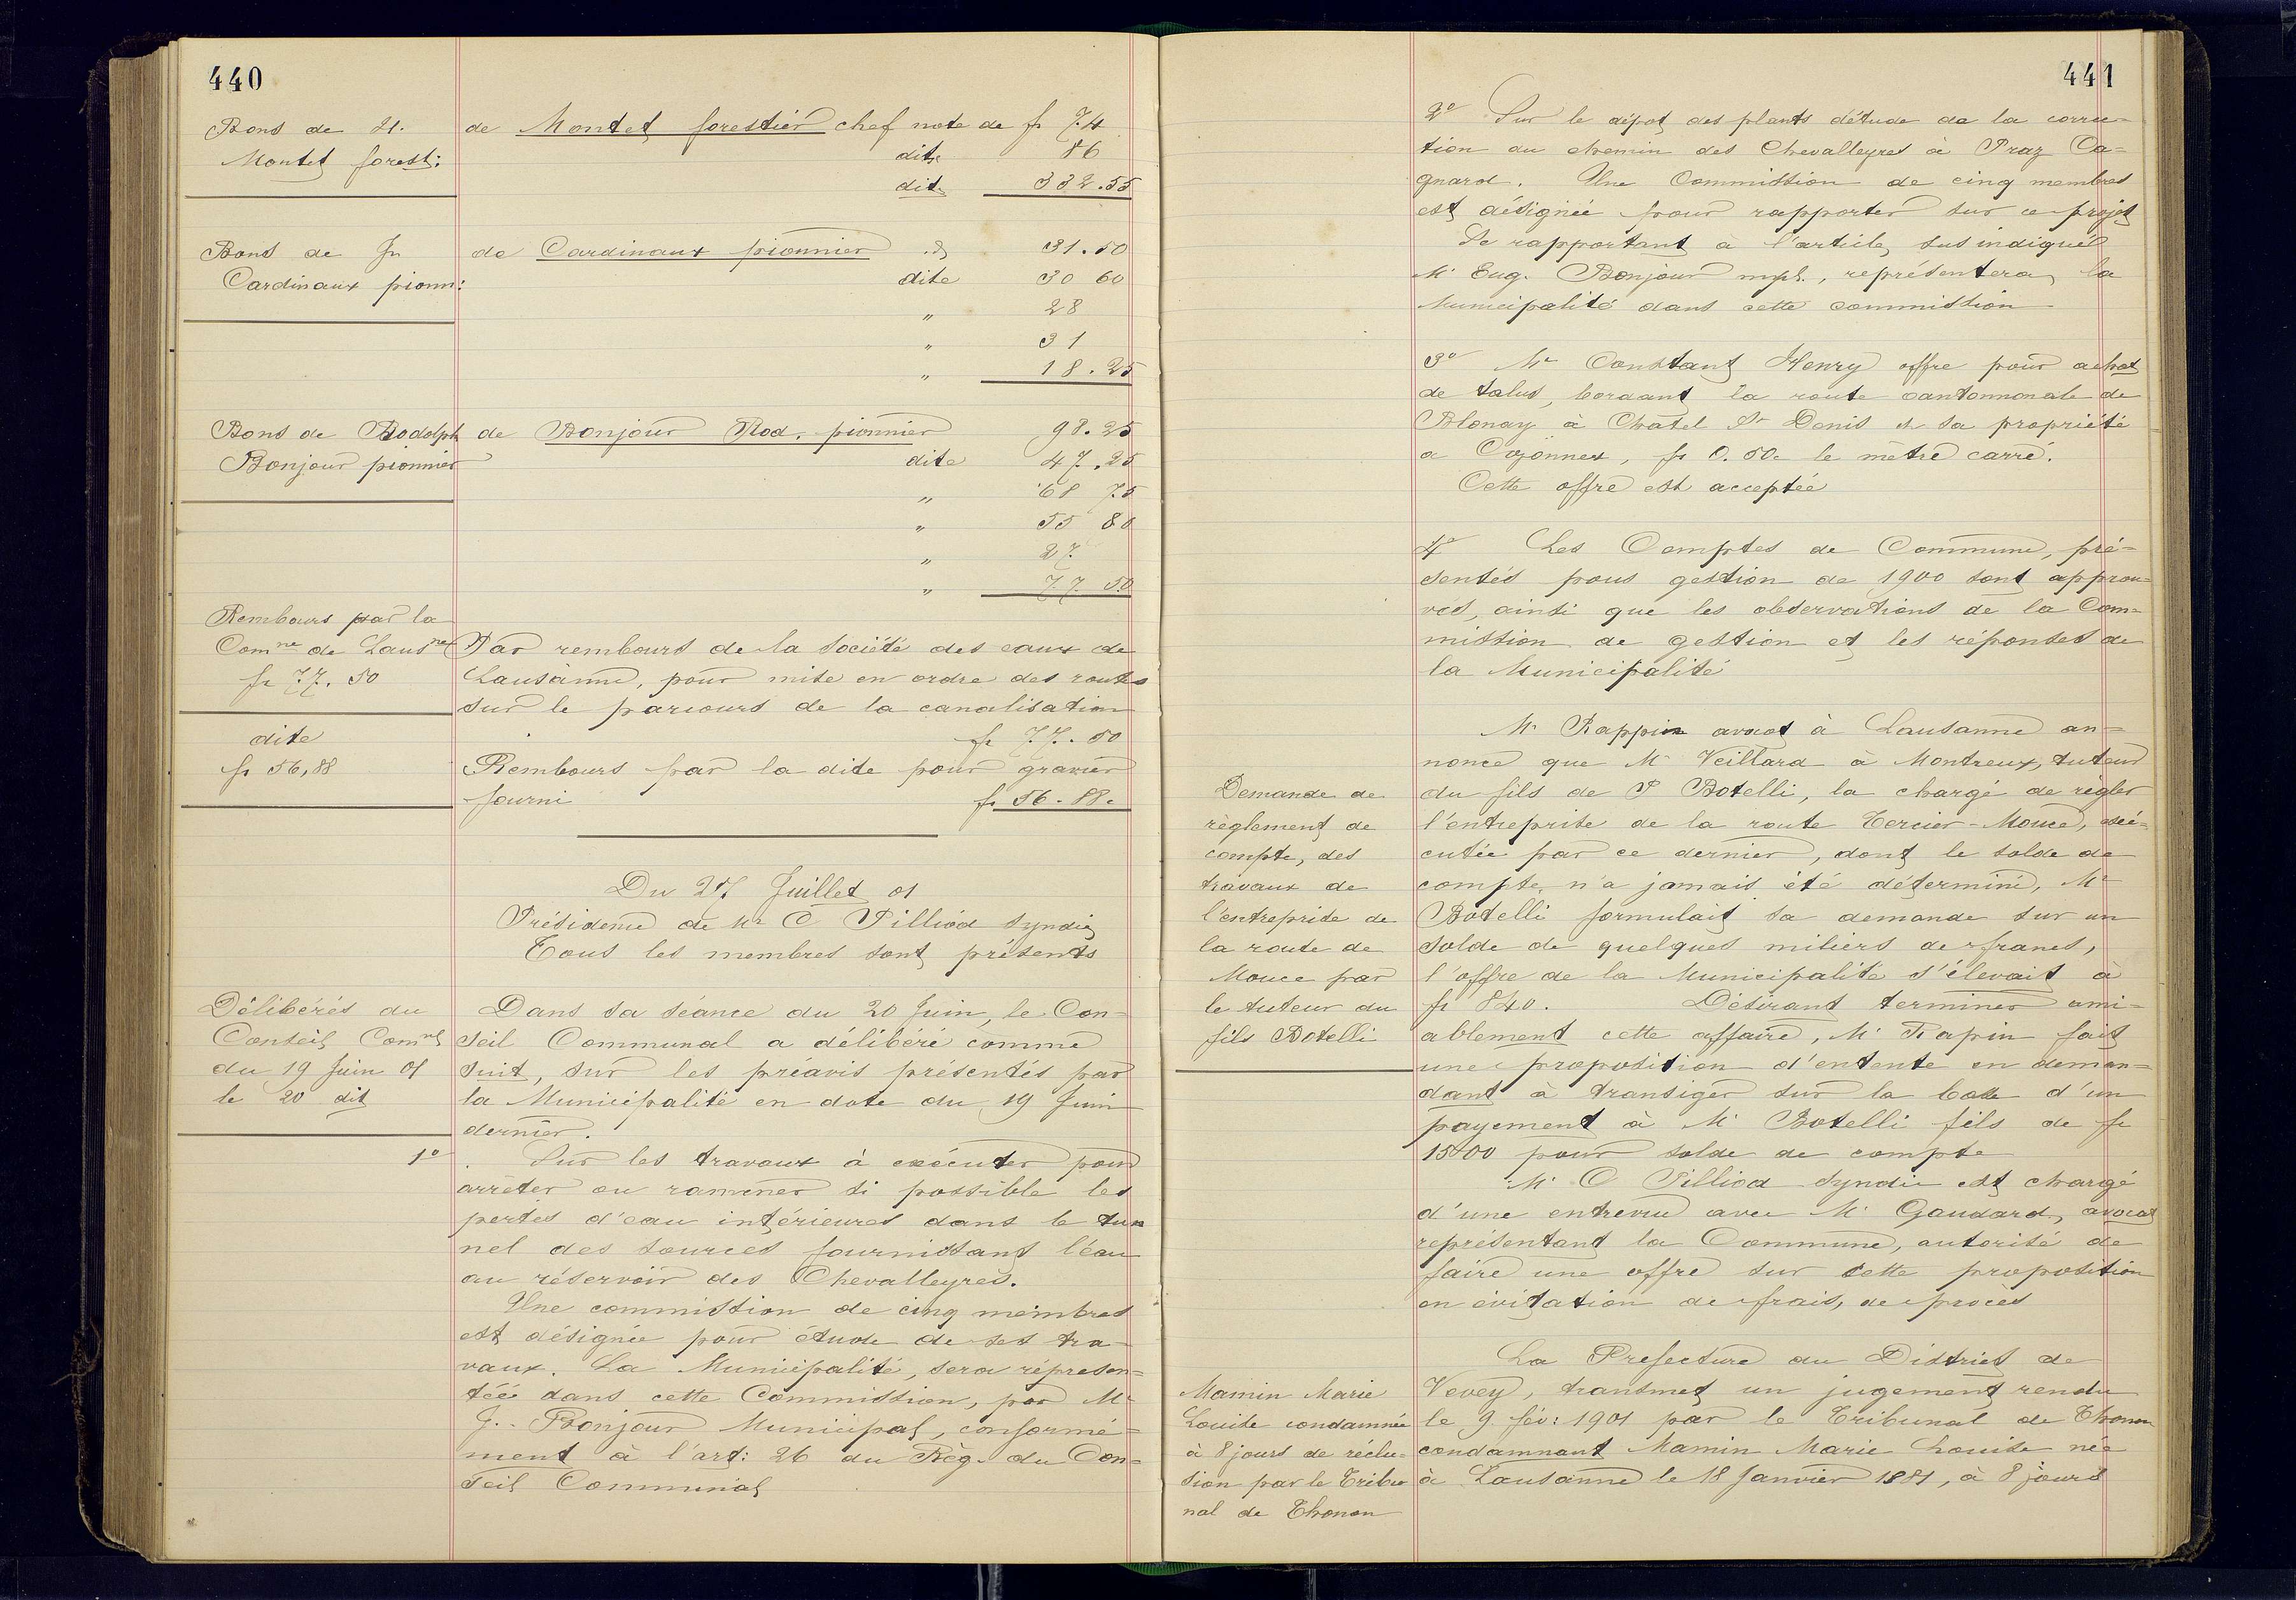 440
Bons de H.
Montet forest:
de Montet forestier chef note de fr 74
dite 86
dite 332.55
Bons de Jn
Cardinaux pionn:
de Cardinaux pionnier d 31.50
dite 30 60
" 28
" 31
" 18.25
Bons de Rodolph
Bonjour pionnier
de Bonjour Rod. pionnier 98.25
dite 47.25
" 68 75
" 55 80
" 27
" 77 50
Rembours par la
Comne de Lausne
fr 77.50
Par rembours de la Société des eaux de
Lausanne, pour mise en ordre des routes
sur le parcours de la canalisation
fr 77.50
dite
fr 56,88
Rembours par la dite pour gravier
fourni fr 56.88.
Du 27 Juillet 01
Présidence de Mr O Pilliod syndic
Tous les membres sont présents
Délibérés du
Conseil Comnl
du 19 Juin 01
le 20 dit
Dans sa séance du 20 Juin, le Con-
seil Communal a délibéré comme
suit, sur les préavis présentés par
la Municipalité en date du 19 Juin
dernier.
1o Sur les travaux à exécuter pour
arrêter ou ramener si possible les
pertes d'eau intérieures dans le tun
nel des sources fournissant l'eau
au réservoir des Chevalleyres.
Une commission de cinq membres
est désignée pour étude de ses tra-
vaux. La Municipalité, sera répresen-
téée dans cette Commission, par Mr
J. Bonjour Municipal, conformé-
ment à l'art: 26 du Règ. du Con-
seil Communal
441
2o Sur le dépot des plants d'étude de la correc-
tion du chemin des Chevalleyres à Praz Ca-
gnard. Une Commission de cinq membres
est désignée pour rapporter sur ce projet
Se rapportant à l'article, sus indiqué
Mr Eug. Bonjour mpl., représentera la
Municipalité dans cette commission
3o Mr Constant Henry offre pour achat
de talus, bordant la route cantonnonale de
Blonay à Chatel St Denis et sa propriété
a Cojonnex, fr 0.50c le mètre carré.
Cette offre est acceptée
4o Les Comptes de Commune, pré-
sentés pous gestion de 1900 sont approu-
vés, ainsi que les observations de la Com-
mission de gestion et les réponses de
la Municipalité
Demande de
règlement de
compte, des
travaux de
l'entreprise de
la route de
Mouce par
le tuteur du
fils Botelli
Mr Rappin avocat à Lausanne an-
nonce que Mr Veillard à Montreux, tuteur
du fils de P Botelli, la chargé de règler
l'entreprise de la route Tercier-Mouce, exé-
cutée par ce dernier, dont le solde de
compte, n'a jamais été déterminé, Mr
Botelli formulait sa demande sur un
solde de quelques miliers de francs,
l'offre de la Municipalité s'élevait à
fr 840. Désirant terminer ami-
ablement cette affaire, Mr Rapin fait
une proposition d'entente en deman-
dant à transiger sur la base d'un
payement à Mr Botelli fils de fr
1500 pour solde de compte
Mr O Pilliod Syndic est chargé
d'une entrevue avec Mr Gaudard, avocat
représentant la Commune, autorisé de
faire une offre sur cette proposition
en évitation de frais, de procès
Mamin Marie
Louise condamnée
à 8 jours de réclu-
sion par le Tribu
nal de Thonon
La Préfecture du District de
Vevey, transmet un jugement rendu
le 9 fév: 1901 par le Tribunal de Thonon
condamnant Mamin Marie Louise née
à Lausanne le 18 Janvier 1881, à 8 jours